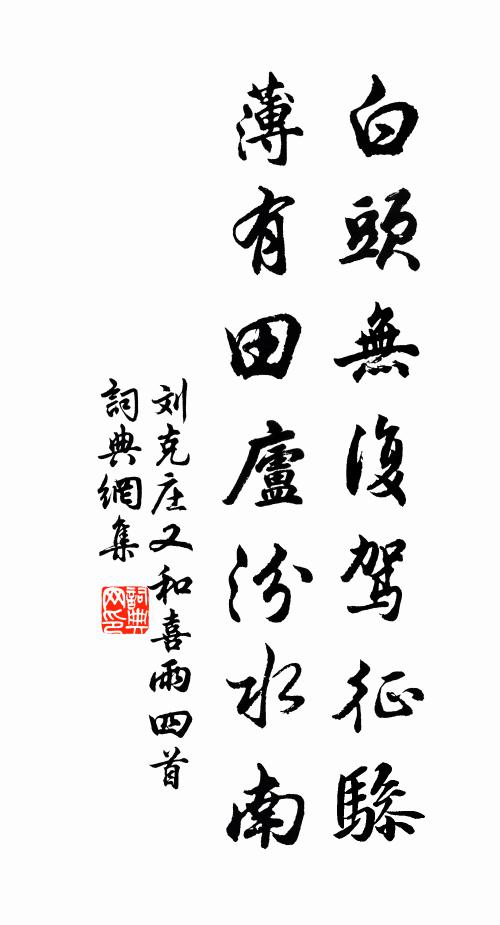 白頭無復駕征驂
薄有田廬汾水南
刘克庄又和喜雨四首
詞典網集
詞典
网印